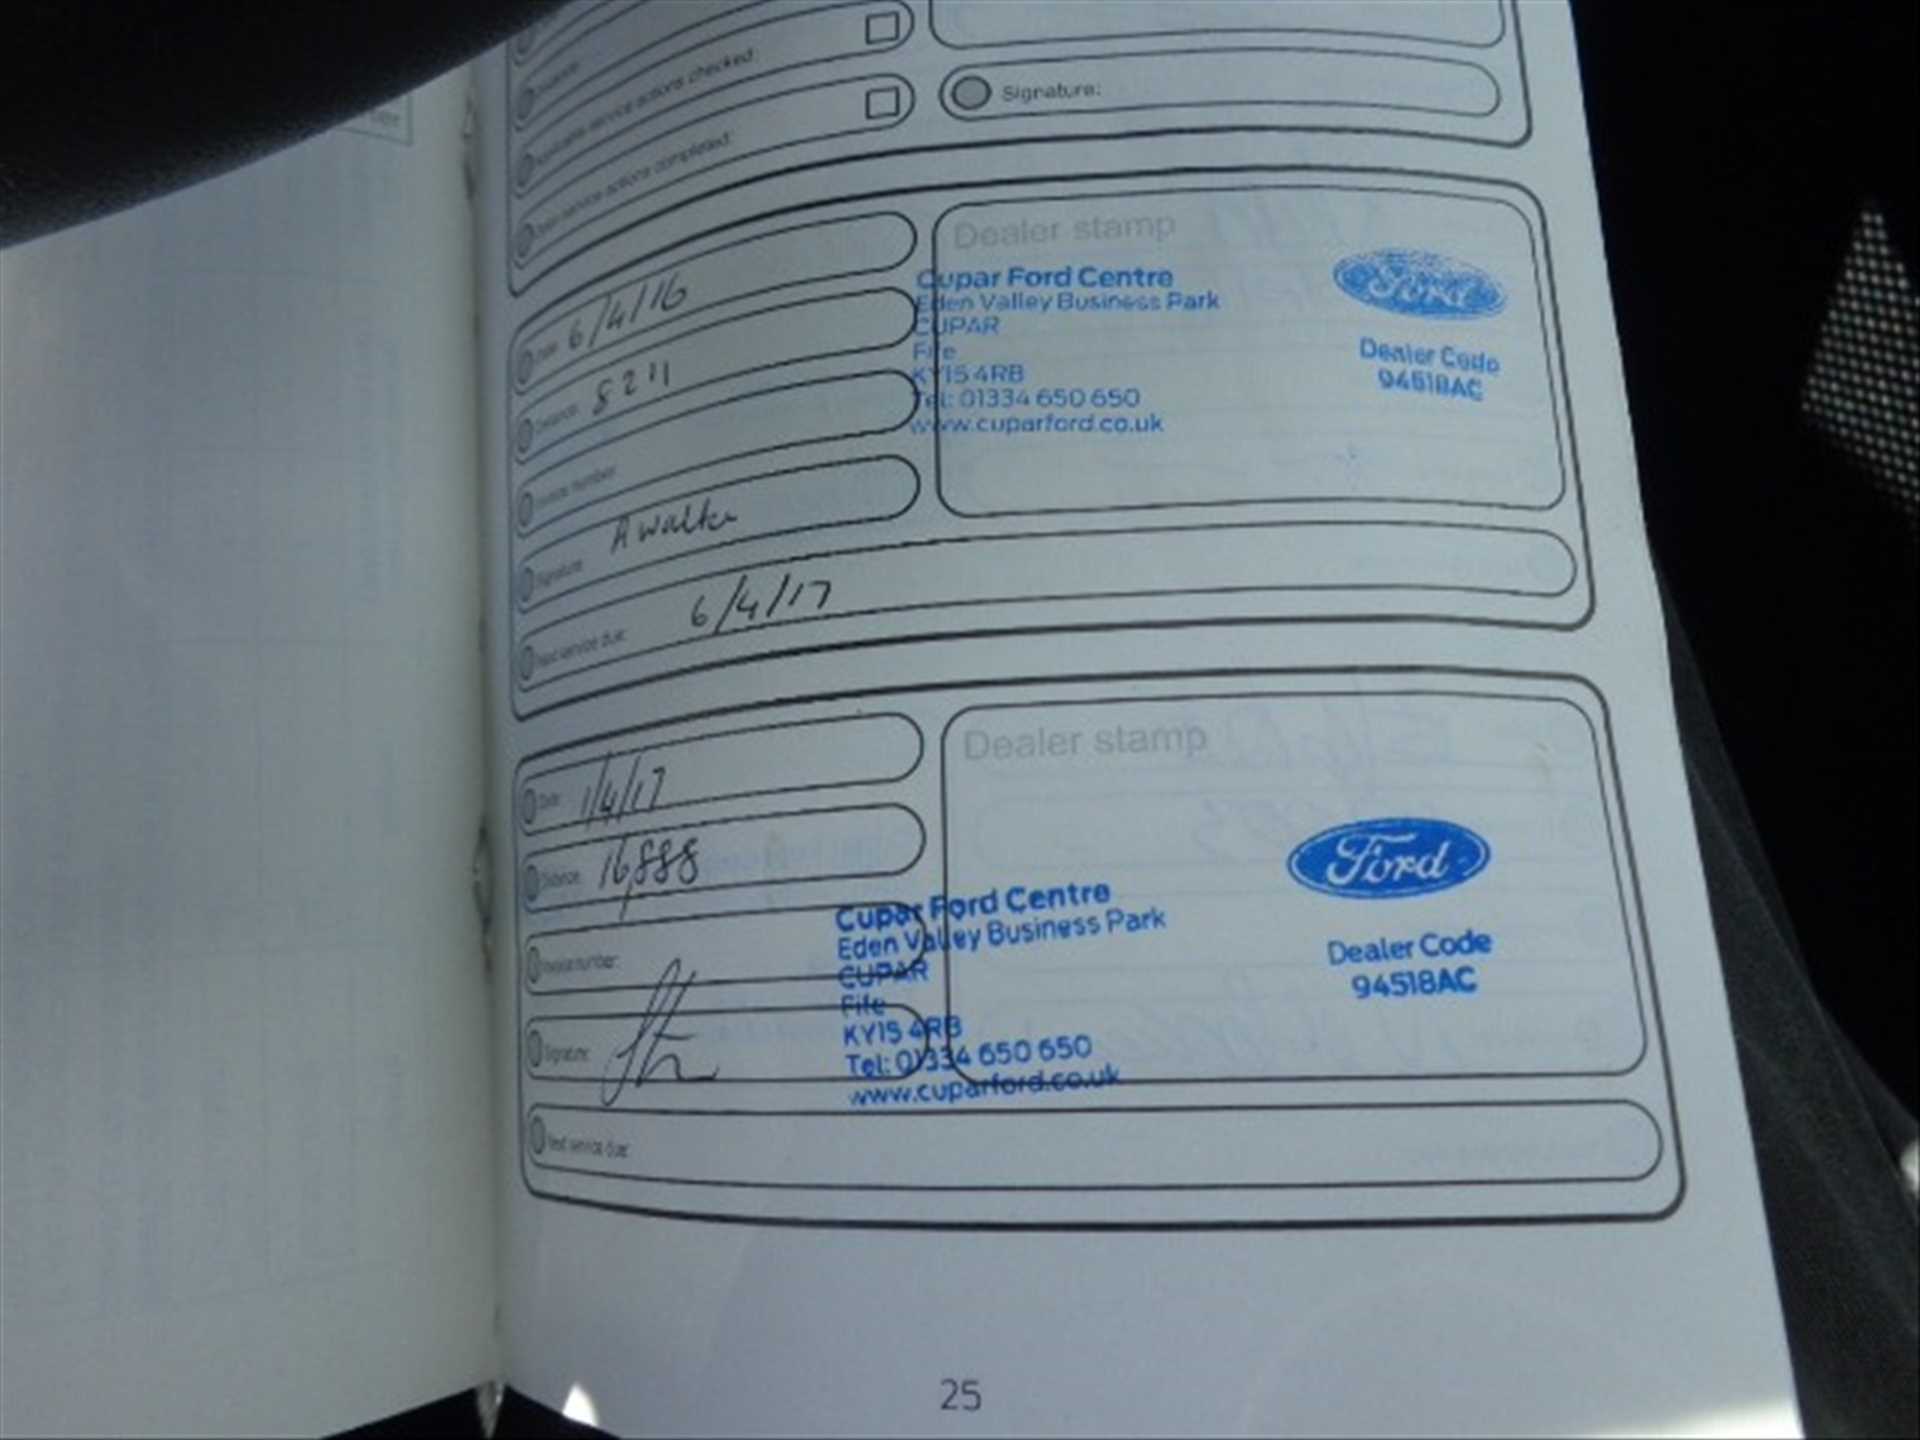 service actions checked:
service actions completed:
Signature:
Date: 6/4/16
Distance: 8211
Invoice number:
Signature: A Walker
Next service due: 6/4/17
Dealer stamp
Cupar Ford Centre
Eden Valley Business Park
CUPAR
Fife
KY15 4RB
Tel: 01334 650 650
www.cuparford.co.uk
Ford
Dealer Code
94518AC
Date: 1/4/17
Distance: 16,888
Invoice number:
Signature:
Dealer stamp
Cupar Ford Centre
Eden Valley Business Park
CUPAR
Fife
KY15 4RB
Tel: 01334 650 650
www.cuparford.co.uk
Ford
Dealer Code
94518AC
Next service due:
25